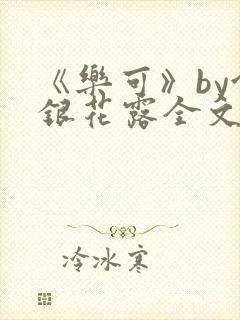 《樂可》by
銀花露全文
冷冰寒